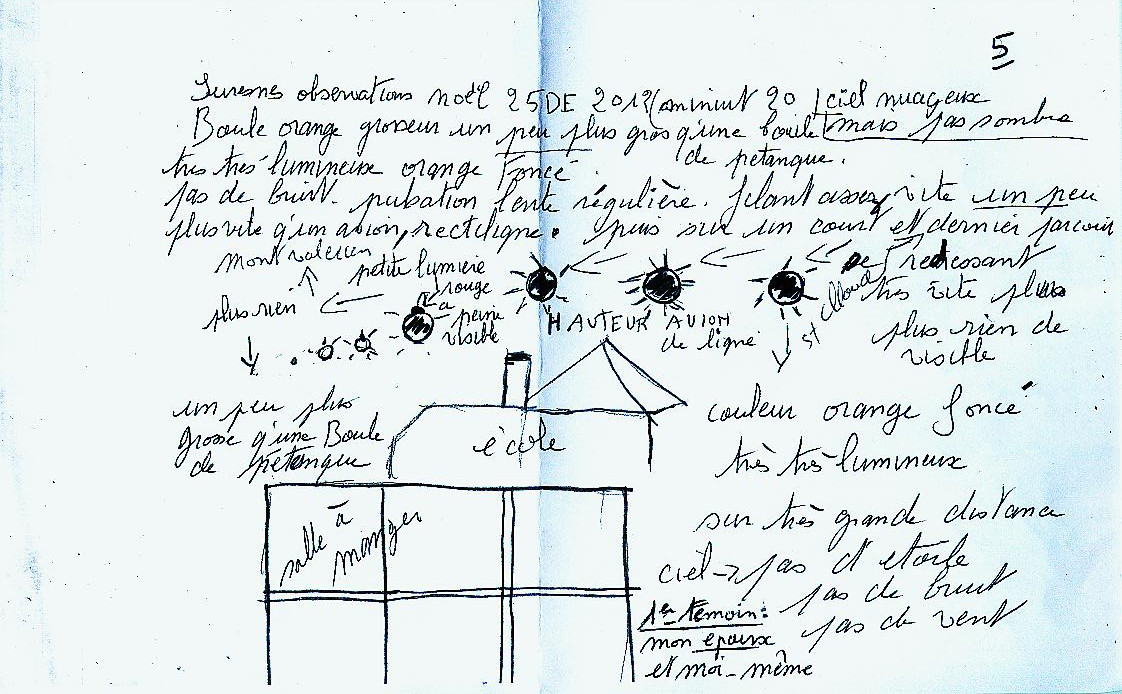 5
Suresnes observations noël 25 DE 2012 (a minuit 20) ciel nuageux
Boule orange grosseur un peu plus gros q'une boule mais pas sombre
de petanque.
très très lumineux orange foncé
pas de bruit. pulsation lente régulière. filant assez vite un peu
plus vite q'un avion, rectiligne. puis sur un court et dernier parcour
mont valerien
petite lumière
rouge
a
peine
visible
se redressant
très vite plus
plus rien de
visible
plus rien
HAUTEUR AVION
de ligne
st cloud
un peu plus
grosse q'une Boule
de petanque
école
couleur orange foncé
très très lumineux
salle à
manger
sur très grande distance
ciel → pas d'etoile
pas de bruit
pas de vent
1er temoin:
mon epoux
et moi-même